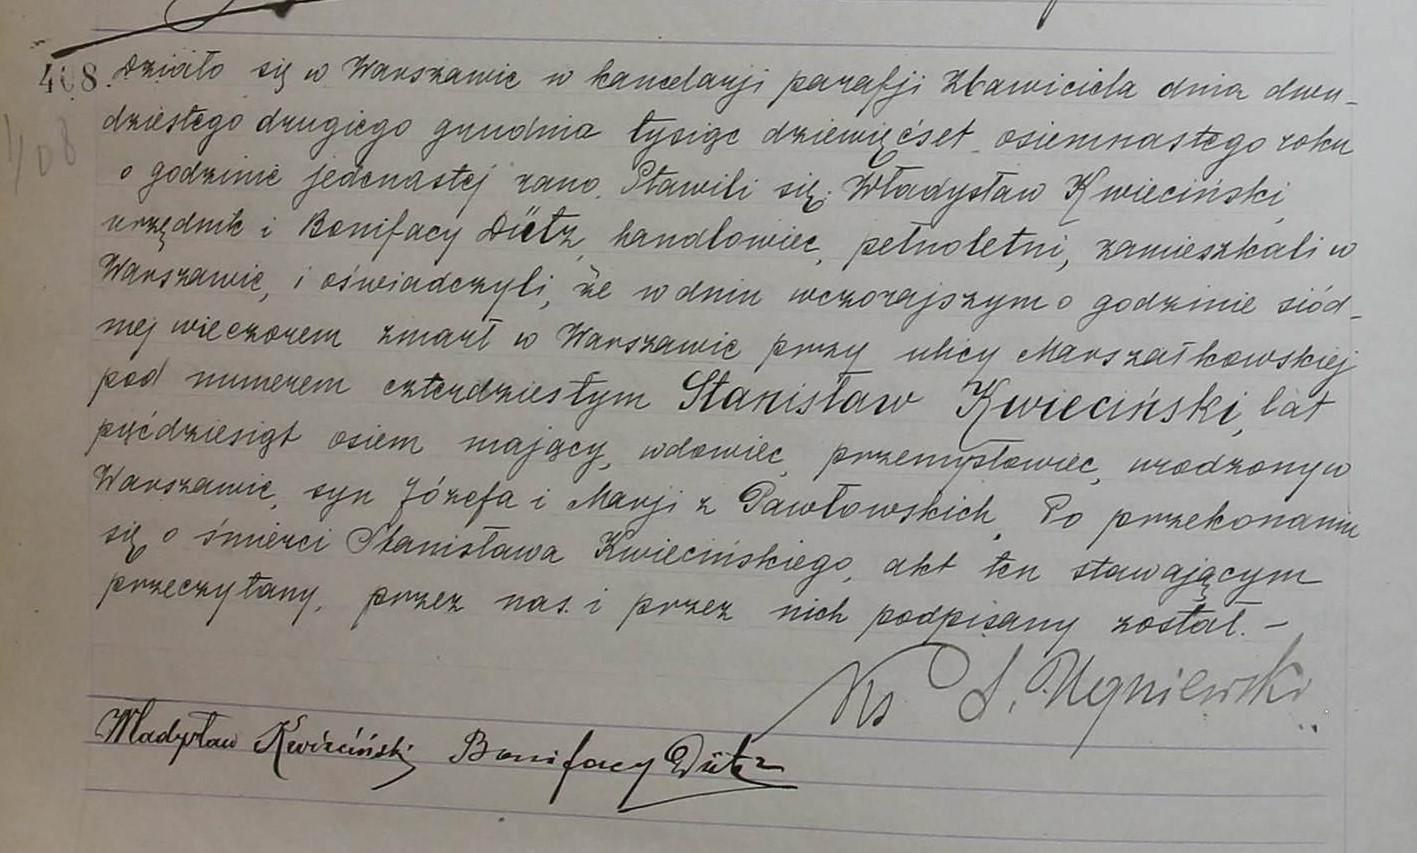 408. Działo się w Warszawie w kancelarji parafji Zbawiciela dnia dwu-
408
dziestego drugiego grudnia tysiąc dziewięćset osiemnastego roku
o godzinie jedenastej rano. Stawili się: Władysław Kwieciński,
urzędnik i Bonifacy Dütz, handlowiec, pełnoletni, zamieszkali w
Warszawie, i oświadczyli, że w dniu wczorajszym o godzinie siód-
mej wieczorem zmarł w Warszawie przy ulicy Marszałkowskiej
pod numerem czterdziestym Stanisław Kwieciński, lat
pięćdziesiąt osiem mający, wdowiec, przemysłowiec, urodzony w
Warszawie, syn Józefa i Marji z Pawłowskich. Po przekonaniu
się o śmierci Stanisława Kwiecińskiego, akt ten stawającym
przeczytany, przez nas i przez nich podpisany został. —
Ks S.
Władysław Kwieciński Bonifacy Dütz